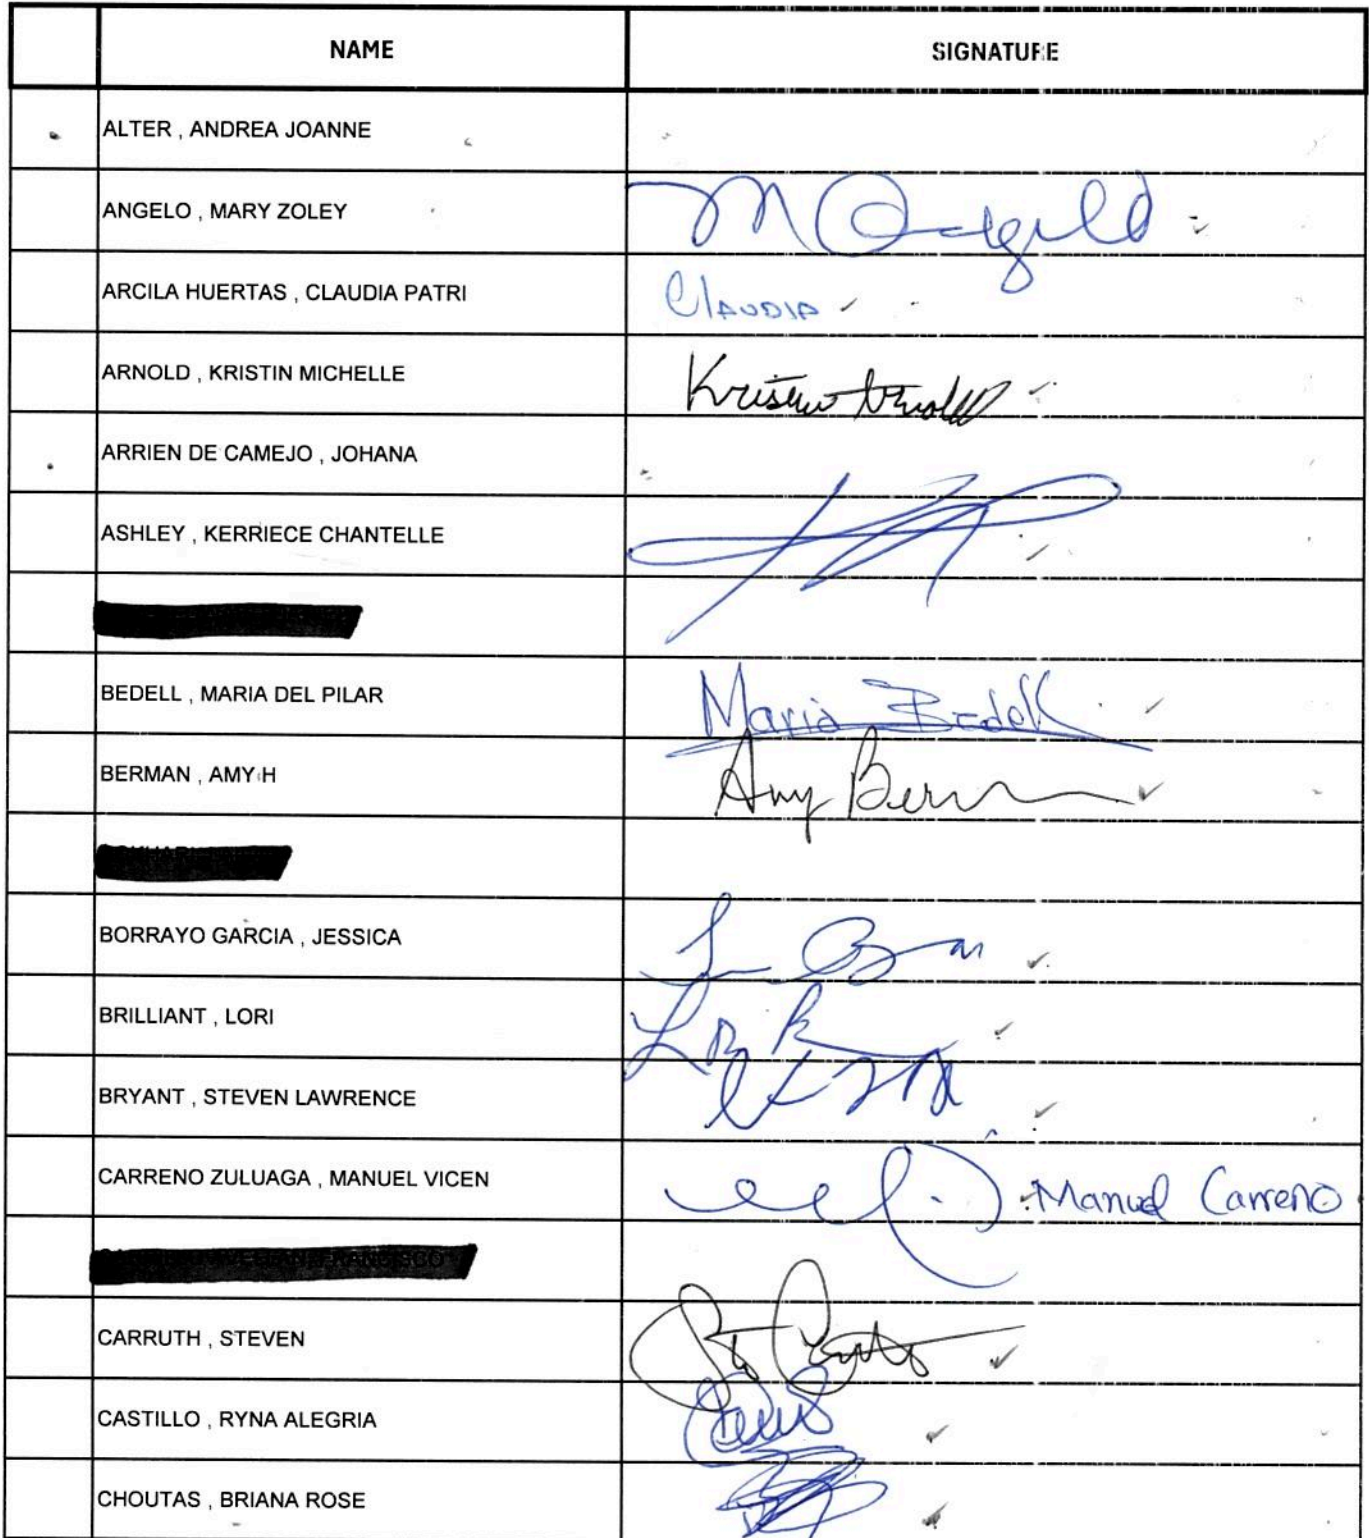 NAME SIGNATURE
ALTER , ANDREA JOANNE
ANGELO , MARY ZOLEY
ARCILA HUERTAS , CLAUDIA PATRI Claudia
ARNOLD , KRISTIN MICHELLE Kristin Arnold
ARRIEN DE CAMEJO , JOHANA
ASHLEY , KERRIECE CHANTELLE
BEDELL , MARIA DEL PILAR Maria Bedell
BERMAN , AMY H Amy Berman
BORRAYO GARCIA , JESSICA
BRILLIANT , LORI
BRYANT , STEVEN LAWRENCE
CARRENO ZULUAGA , MANUEL VICEN Manuel Carreno
CARRUTH , STEVEN
CASTILLO , RYNA ALEGRIA
CHOUTAS , BRIANA ROSE